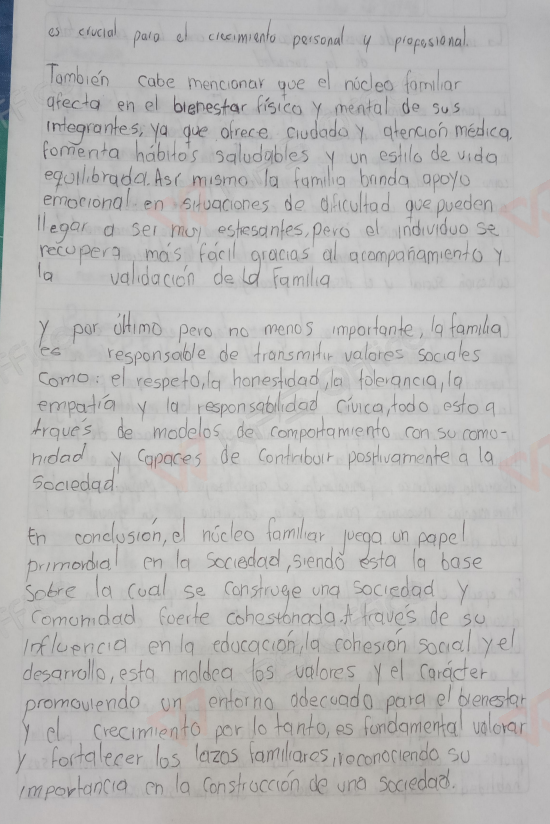 es crucial para el crecimiento personal y profesional.
También cabe mencionar que el núcleo familiar
afecta en el bienestar físico y mental de sus
integrantes, ya que ofrece ciudado y atención médica,
fomenta hábitos saludables y un estilo de vida
equilibrada. Así mismo la familia brinda apoyo
emocional en situaciones de dificultad que pueden
llegar a ser muy estresantes, pero el individuo se
recupera más fácil gracias al acompañamiento y
la validación de la familia
Y por último pero no menos importante, la familia
es responsable de transmitir valores sociales
como: el respeto, la honestidad, la tolerancia, la
empatía y la responsabilidad cívica, todo esto a
través de modelos de comportamiento con su comu-
nidad y capaces de contribuir positivamente a la
sociedad
En conclusión, el núcleo familiar juega un papel
primordial en la sociedad, siendo ésta la base
sobre la cual se construye una sociedad y
comunidad fuerte cohesionada. través de su
influencia en la educación, la cohesión social y el
desarrollo, esta moldea los valores y el carácter
promoviendo un entorno adecuado para el bienestar
y el crecimiento por lo tanto, es fundamental valorar
y fortalecer los lazos familiares, reconociendo su
importancia en la construcción de una sociedad.